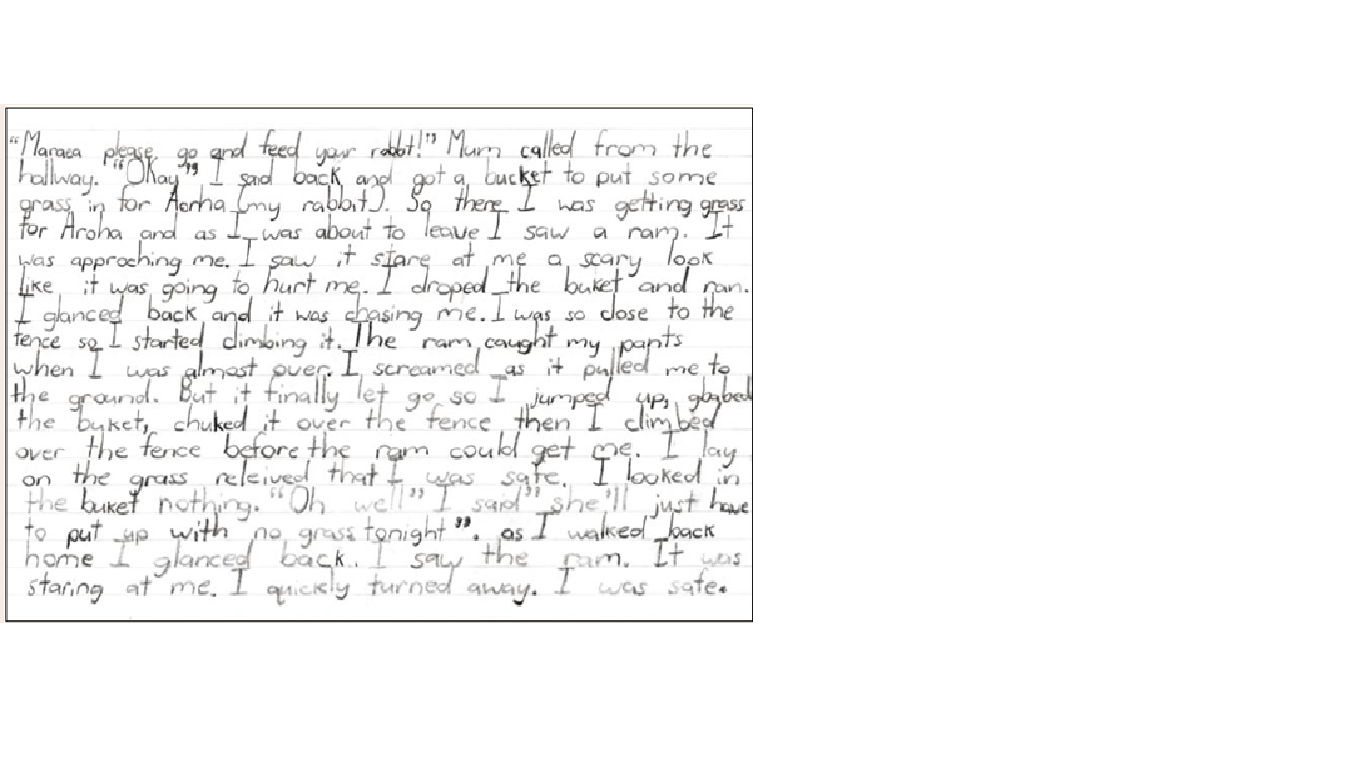 "Maraea please go and feed your rabbit!" Mum called from the
hallway. "Okay" I said back and got a bucket to put some
grass in for Aorha (my rabbit). So there I was getting grass
for Aroha and as I was about to leave I saw a ram. It
was approching me. I saw it stare at me a scary look
like it was going to hurt me. I droped the buket and ran.
I glanced back and it was chasing me. I was so close to the
fence so I started climbing it. The ram caught my pants
when I was almost over. I screamed as it pulled me to
the ground. But it finally let go so I jumped up,
the buket, chuked it over the fence then I climbed
over the fence before the ram could get me. I lay
on the grass releived that I was safe. I looked in
the buket nothing. "Oh well" I said" she'll just have
to put up with no grass tonight". as I walked back
home I glanced back. I saw the ram. It was
staring at me. I quickly turned away. I was safe.